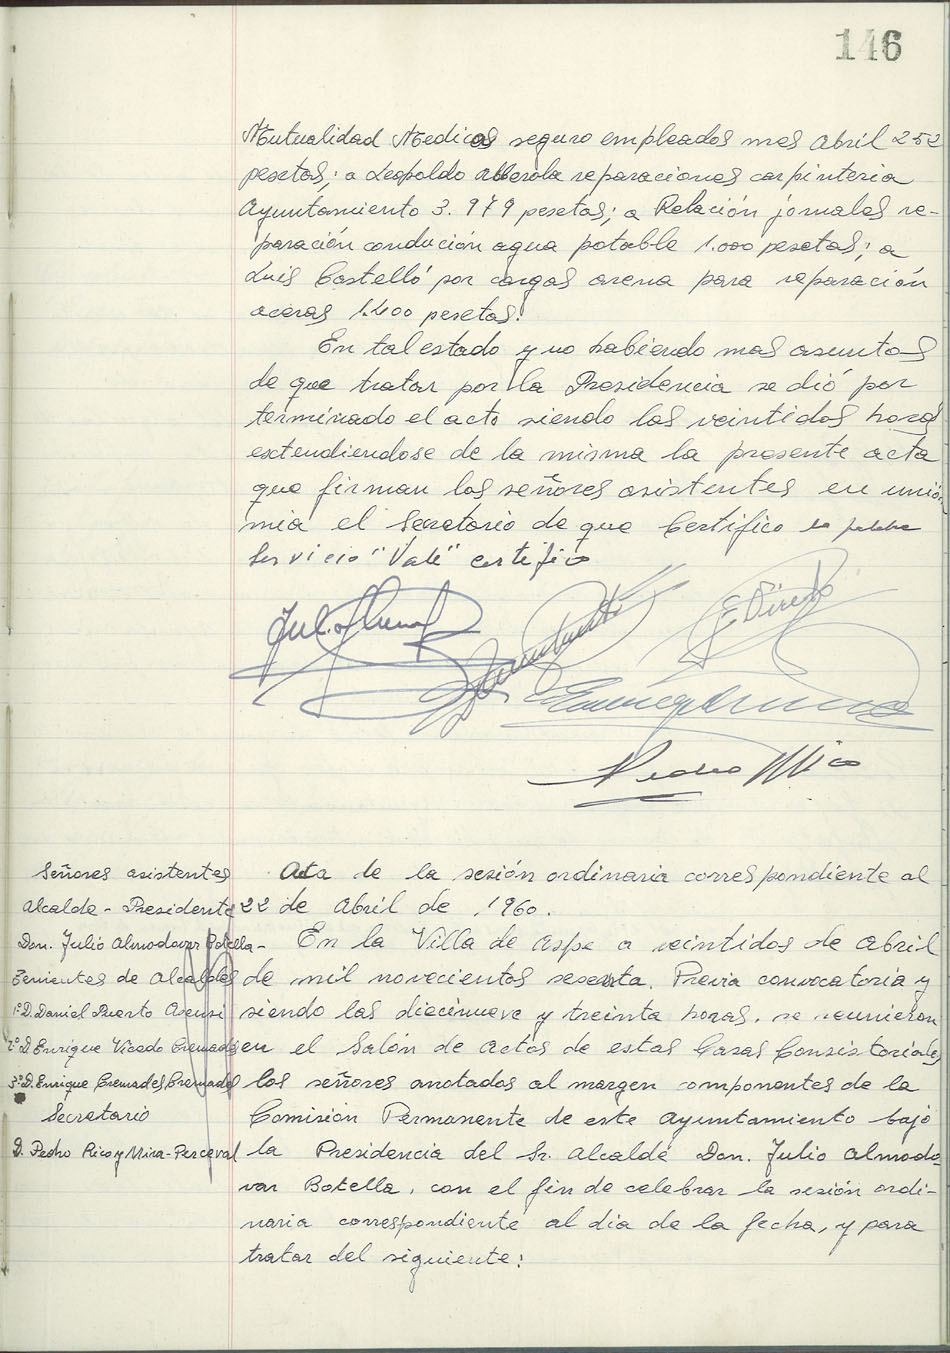 146
Mutualidad Medicas seguro empleados mes Abril 252
pesetas; a Leopoldo Alberola reparaciones carpinteria
Ayuntamiento 3.979 pesetas; a Relación jornales re-
paración condución agua potable 1.000 pesetas; a
Luis Castelló por cargas arena para reparación
aceras 1.400 pesetas.
En tal estado y no habiendo mas asuntos
de que tratar por la Presidencia se dió por
terminado el acto siendo las veintidos horas
extendiendose de la misma la presente acta
que firman los señores asistentes en unión
mia el Secretario de que Certifico la palabra
Servicio "Vale" certifico
E Vicedo
Pedro Rico
Señores asistentes
Alcalde - Presidente
Don. Julio Almodovar Botella-
Tenientes de Alcaldes
1º D. Daniel Puerto Asensi
2º D. Enrique Vicedo Cremades
3º D. Enrique Cremades Cremades
Secretario
D. Pedro Rico y Mira-Perceval
Acta de la sesión ordinaria correspondiente al
22 de Abril de 1960.
En la Villa de Aspe a veintidos de Abril
de mil novecientos sesenta. Previa convocatoria y
siendo las diecinueve y treinta horas, se reunieron
en el Salón de Actos de estas Casas Consistoriales
los señores anotados al margen componentes de la
Comisión Permanente de este Ayuntamiento bajo
la Presidencia del Sr. Alcalde Don. Julio Almodo-
var Botella, con el fin de celebrar la sesión ordi-
naria correspondiente al dia de la fecha, y para
tratar del siguiente: